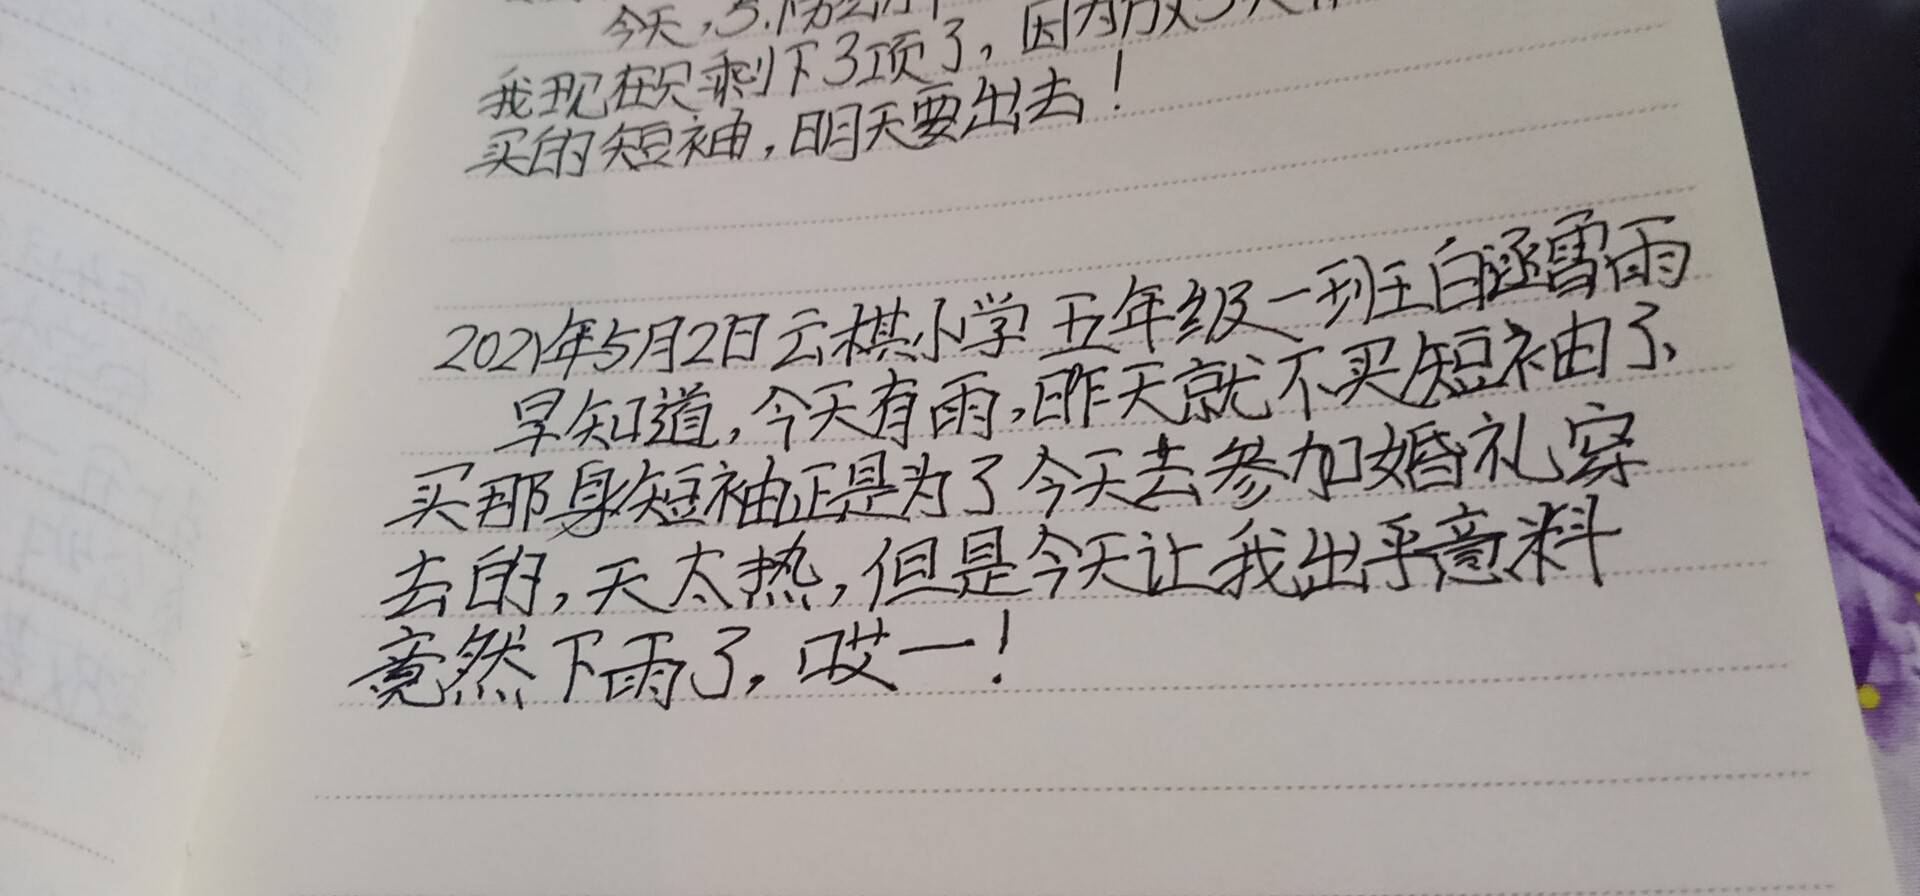 今天,5.1
我现在只剩下3项了,因为放3天
买的短袖,明天要出去!
2021年5月2日云棋小学五年级一班白涵雪雨
早知道,今天有雨,昨天就不买短袖了、
买那身短袖正是为了今天去参加婚礼穿
去的,天太热,但是今天让我出乎意料
竟然下雨了,哎一!